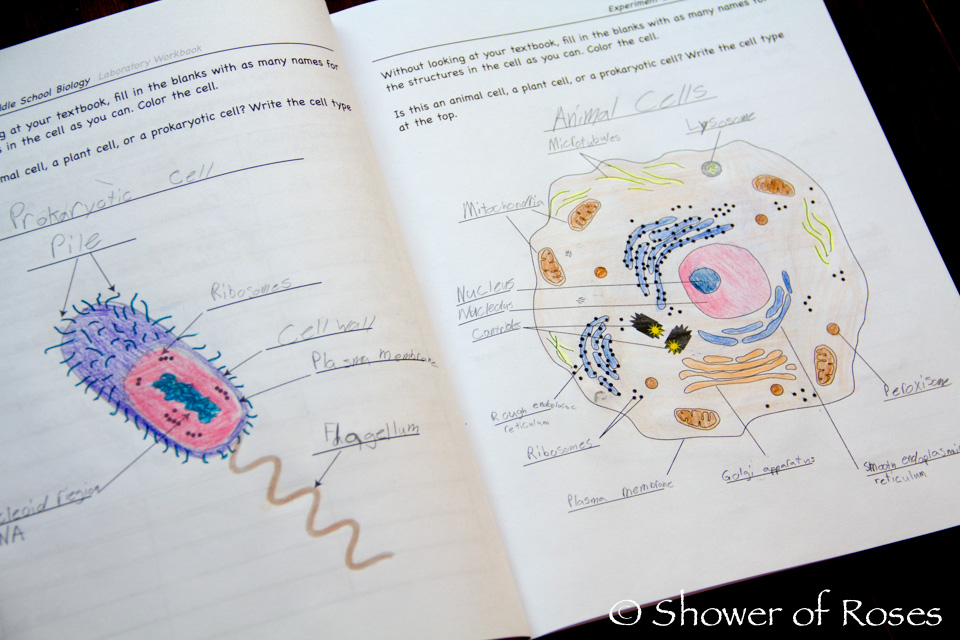 ddle School Biology Laboratory Workbook
g at your textbook, fill in the blanks with as many names for
s in the cell as you can. Color the cell.
mal cell, a plant cell, or a prokaryotic cell? Write the cell type
Prokaryotic Cell
Pile
Ribosomes
Cell wall
Plasma membrane
Flagellum
cleoid region
NA
Experiment
Without looking at your textbook, fill in the blanks with as many names for
the structures in the cell as you can. Color the cell.
Is this an animal cell, a plant cell, or a prokaryotic cell? Write the cell type
at the top.
Animal Cells
Microtubules
Lysosome
Mitochondria
Nucleus
Nucleolus
Centrioles
Rough endoplasmic
reticulum
Ribosomes
Plasma membrane
Golgi apparatus
Smooth endoplasmic
reticulum
Peroxisome
© Shower of Roses